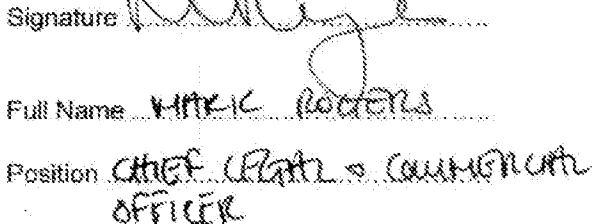 Signature
Full Name MARK ROGERS
Position CHIEF LEGAL & COMMERCIAL
OFFICER